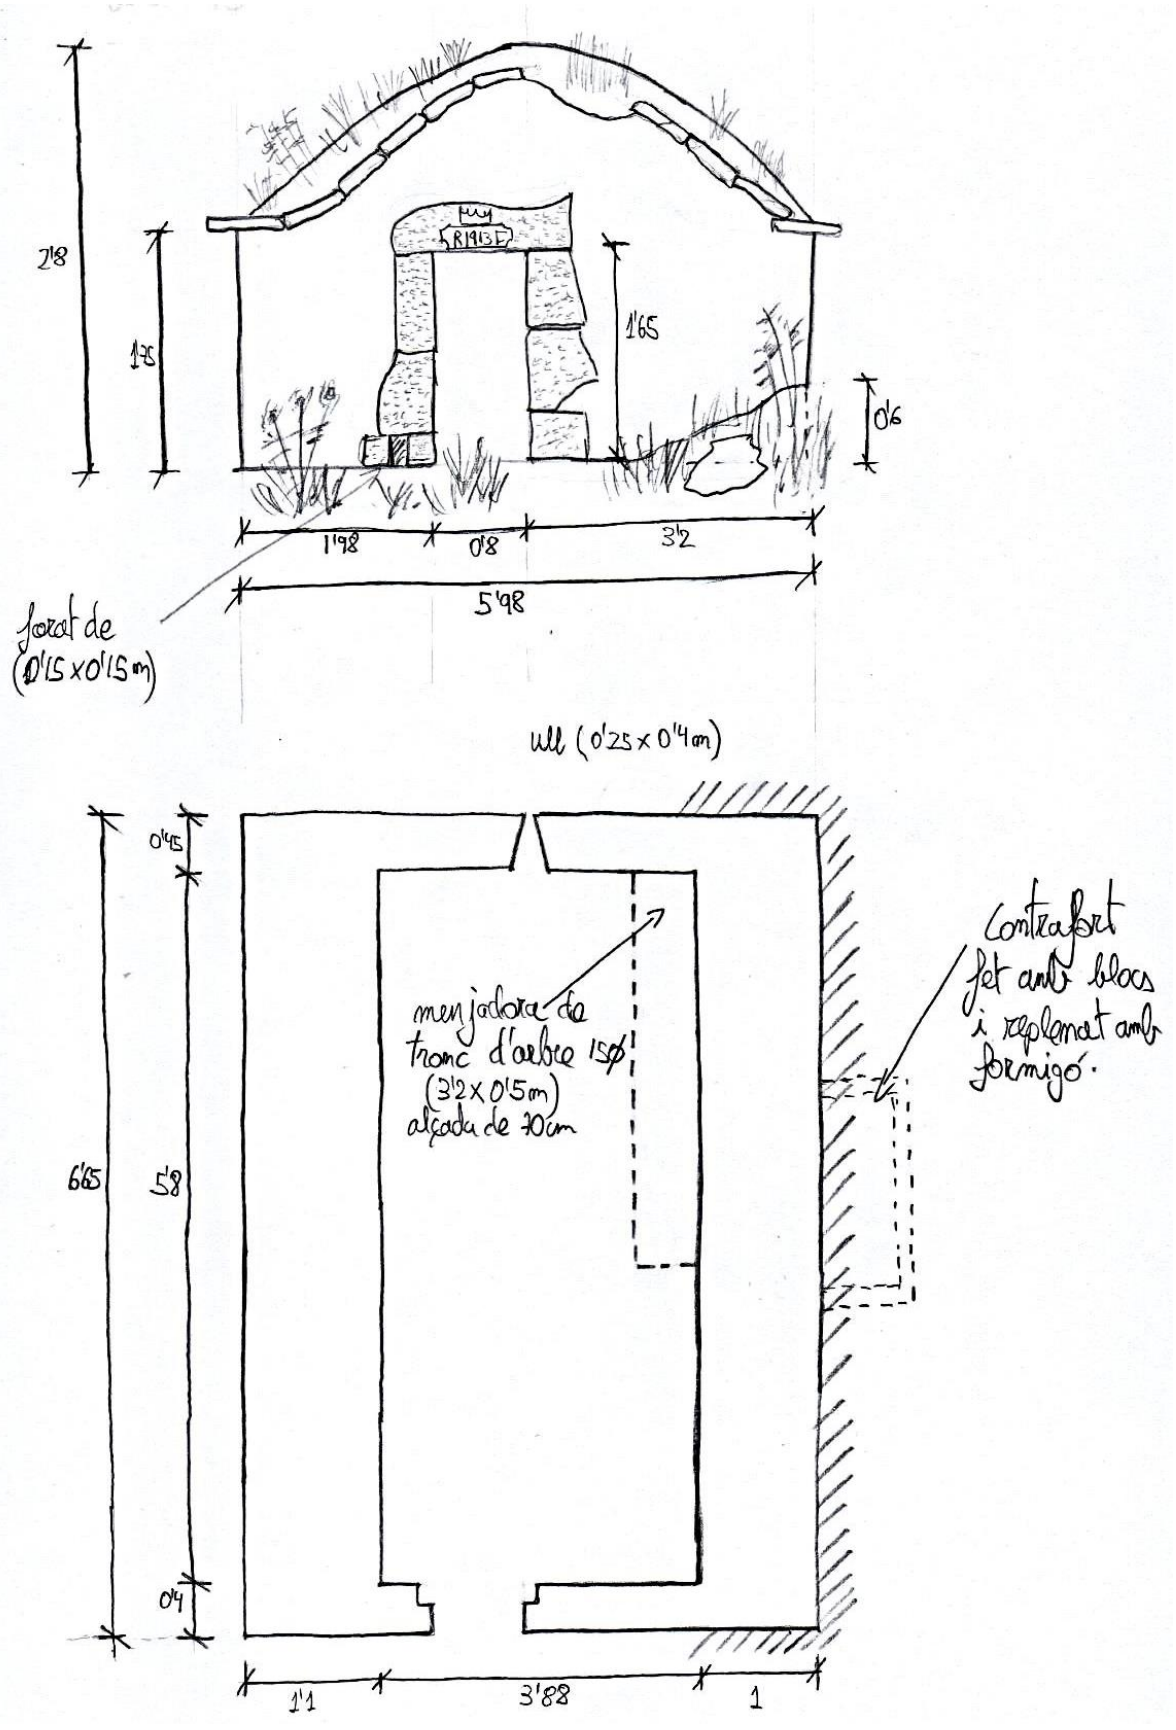 2'8
1'75
R1913F
1'65
0'6
1'98
0'8
3'2
5'98
forat de
(0'15 x 0'15m)
ull (0'25 x 0'4m)
0'45
6'65
5'8
0'4
menjadora de
tronc d'arbre 15Ø
(3'2 x 0'5m)
alçada de 70cm
Contrafort
fet amb blocs
i replenat amb
formigó.
1'1
3'88
1